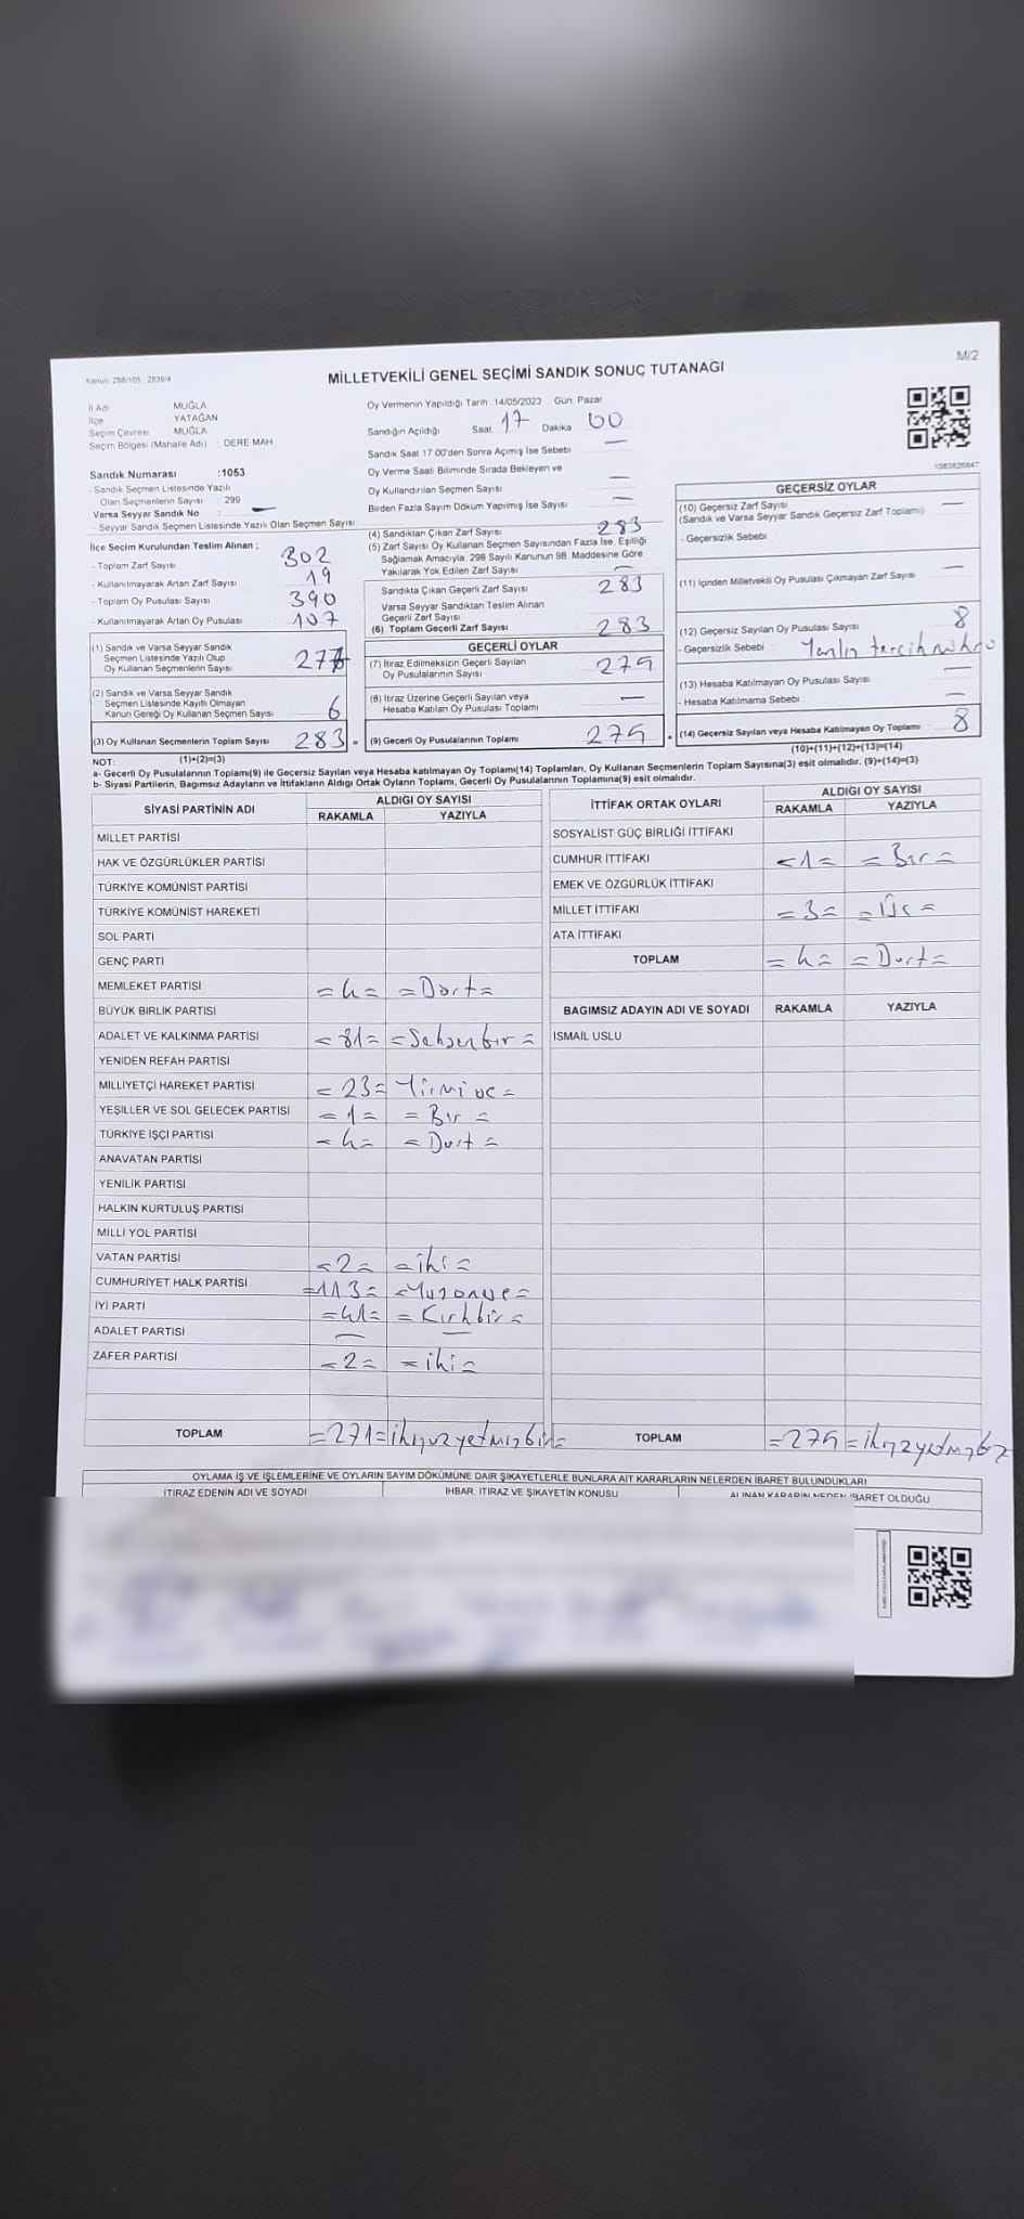 Kanun: 298/105 2839/4
M/2
MİLLETVEKİLİ GENEL SEÇİMİ SANDIK SONUÇ TUTANAĞI
İl Adı MUĞLA
İlçe YATAĞAN
Seçim Çevresi MUĞLA
Seçim Bölgesi (Mahalle Adı) : DERE MAH.
Sandık Numarası :1053
- Sandık Seçmen Listesinde Yazılı
Olan Seçmenlerin Sayısı : 299
Varsa Seyyar Sandık No : —
- Seyyar Sandık Seçmen Listesinde Yazılı Olan Seçmen Sayısı
Oy Vermenin Yapıldığı Tarih :14/05/2023 Gün: Pazar
Sandığın Açıldığı Saat 17 Dakika 00
Sandık Saat 17.00'den Sonra Açılmış İse Sebebi —
Oy Verme Saati Bitiminde Sırada Bekleyen ve
Oy Kullandırılan Seçmen Sayısı —
Birden Fazla Sayım Döküm Yapılmış İse Sayısı —
İlçe Seçim Kurulundan Teslim Alınan ;
- Toplam Zarf Sayısı 302
- Kullanılmayarak Artan Zarf Sayısı 19
- Toplam Oy Pusulası Sayısı 390
- Kullanılmayarak Artan Oy Pusulası 107
(1) Sandık ve Varsa Seyyar Sandık
Seçmen Listesinde Yazılı Olup
Oy Kullanan Seçmenlerin Sayısı 277
(2) Sandık ve Varsa Seyyar Sandık
Seçmen Listesinde Kayıtlı Olmayan
Kanun Gereği Oy Kullanan Seçmen Sayısı 6
(3) Oy Kullanan Seçmenlerin Toplam Sayısı 283
(1)+(2)=(3)
(4) Sandıktan Çıkan Zarf Sayısı 283
(5) Zarf Sayısı Oy Kullanan Seçmen Sayısından Fazla İse, Eşitliği
Sağlamak Amacıyla, 298 Sayılı Kanunun 98. Maddesine Göre
Yakılarak Yok Edilen Zarf Sayısı —
Sandıkta Çıkan Geçerli Zarf Sayısı 283
Varsa Seyyar Sandıktan Teslim Alınan
Geçerli Zarf Sayısı
(6) Toplam Geçerli Zarf Sayısı 283
GEÇERLİ OYLAR
(7) İtiraz Edilmeksizin Geçerli Sayılan
Oy Pusulalarının Sayısı 275
(8) İtiraz Üzerine Geçerli Sayılan veya
Hesaba Katılan Oy Pusulası Toplamı —
(9) Geçerli Oy Pusulalarının Toplamı 275
GEÇERSİZ OYLAR
(10) Geçersiz Zarf Sayısı —
(Sandık ve Varsa Seyyar Sandık Geçersiz Zarf Toplamı)
- Geçersizlik Sebebi
(11) İçinden Milletvekili Oy Pusulası Çıkmayan Zarf Sayısı —
(12) Geçersiz Sayılan Oy Pusulası Sayısı 8
- Geçersizlik Sebebi : Yanlış tercih mührü
(13) Hesaba Katılmayan Oy Pusulası Sayısı —
- Hesaba Katılmama Sebebi —
(14) Geçersiz Sayılan veya Hesaba Katılmayan Oy Toplamı 8
(10)+(11)+(12)+(13)=(14)
NOT:
a- Geçerli Oy Pusulalarının Toplamı(9) ile Geçersiz Sayılan veya Hesaba katılmayan Oy Toplamı(14) Toplamları, Oy Kullanan Seçmenlerin Toplam Sayısına(3) eşit olmalıdır. (9)+(14)=(3)
b- Siyasi Partilerin, Bağımsız Adayların ve İttifakların Aldığı Ortak Oyların Toplamı, Geçerli Oy Pusulalarının Toplamına(9) eşit olmalıdır.
SİYASİ PARTİNİN ADI ALDIĞI OY SAYISI
RAKAMLA YAZIYLA
MİLLET PARTİSİ
HAK VE ÖZGÜRLÜKLER PARTİSİ
TÜRKİYE KOMÜNİST PARTİSİ
TÜRKİYE KOMÜNİST HAREKETİ
SOL PARTİ
GENÇ PARTİ
MEMLEKET PARTİSİ =4= =Dört=
BÜYÜK BİRLİK PARTİSİ
ADALET VE KALKINMA PARTİSİ =81= =Seksenbir=
YENİDEN REFAH PARTİSİ
MİLLİYETÇİ HAREKET PARTİSİ =23= Yirmi üç=
YEŞİLLER VE SOL GELECEK PARTİSİ =1= =Bir=
TÜRKİYE İŞÇİ PARTİSİ =4= =Dört=
ANAVATAN PARTİSİ
YENİLİK PARTİSİ
HALKIN KURTULUŞ PARTİSİ
MİLLİ YOL PARTİSİ
VATAN PARTİSİ =2= =iki=
CUMHURİYET HALK PARTİSİ =113= =Yüzonüç=
İYİ PARTİ =41= =Kırkbir=
ADALET PARTİSİ — —
ZAFER PARTİSİ =2= =iki=
TOPLAM =271= ikiyüzyetmişbir=
İTTİFAK ORTAK OYLARI ALDIĞI OY SAYISI
RAKAMLA YAZIYLA
SOSYALİST GÜÇ BİRLİĞİ İTTİFAKI
CUMHUR İTTİFAKI =1= =Bir=
EMEK VE ÖZGÜRLÜK İTTİFAKI
MİLLET İTTİFAKI =3= =Üç=
ATA İTTİFAKI
TOPLAM =4= =Dört=
BAĞIMSIZ ADAYIN ADI VE SOYADI RAKAMLA YAZIYLA
İSMAİL USLU
TOPLAM =275=
OYLAMA İŞ VE İŞLEMLERİNE VE OYLARIN SAYIM DÖKÜMÜNE DAİR ŞİKAYETLERLE BUNLARA AİT KARARLARIN NELERDEN İBARET BULUNDUKLARI
İTİRAZ EDENİN ADI VE SOYADI İHBAR, İTİRAZ VE ŞİKAYETİN KONUSU ALINAN KARARIN NEDEN İBARET OLDUĞU